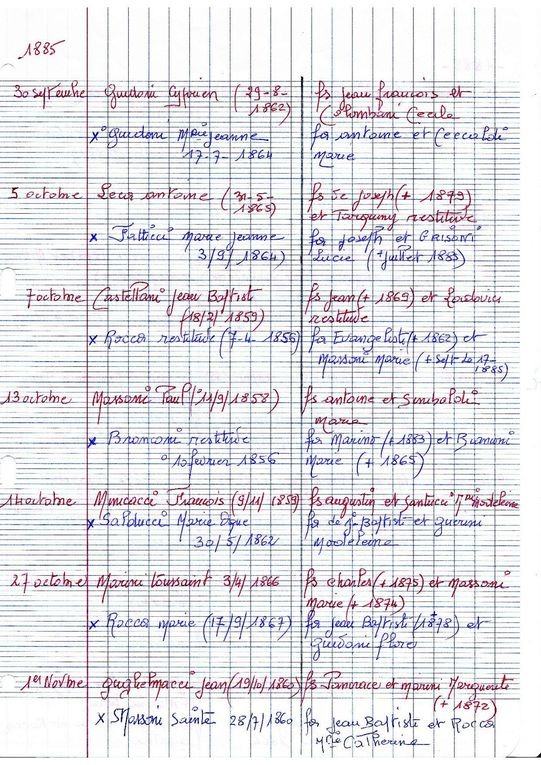 1885
30 septembre Guidoni Cyprien (29-8-1862) fs jean françois et Colombani Cecile
x Guidoni Mie jeanne 17-7-1864 fa antoine et Ceccaldi Marie
5 octobre Leca antoine (31-5-1865) fs de joseph (+ 1879) et Tarquiny restitude
x Fatticci marie jeanne 3/9/1864) fa joseph et GRISONI Lucie (+ juillet 1883)
7 octobre Castellani jean Baptiste (18/2/1859) fs jean (+ 1869) et restitude
x Rocca restitude (7-4-1856) fa Evangeliste (+ 1862) et Massoni Marie (+ sept le 17-1885)
13 octobre Massoni Paul (11/9/1858) fs antoine et Sinibaldi Maria
x restitude 10 fevrier 1856 fa Marino (+ 1883) et Bianconi Marie (+ 1865)
14 octobre Minicacci François (9/11/1859) fs augustin et Santucci Madeleine
x Salducci Marie 30/5/1862 fa de j. Baptiste et Guerini Madeleine
27 octobre Marini toussaint 3/4/1866 fs charles (+ 1875) et Massoni Marie (+ 1874)
x Rocca marie (17/9/1867) fa jean Baptiste (+ 1878) et Guidoni flore
1er Novbre guglielmacci jean (19/10/1860) fs Pancrace et marini Marguerite (+ 1872)
x Massoni Sainte 28/7/1860 fa jean Baptiste et Rocca Mie Catherine